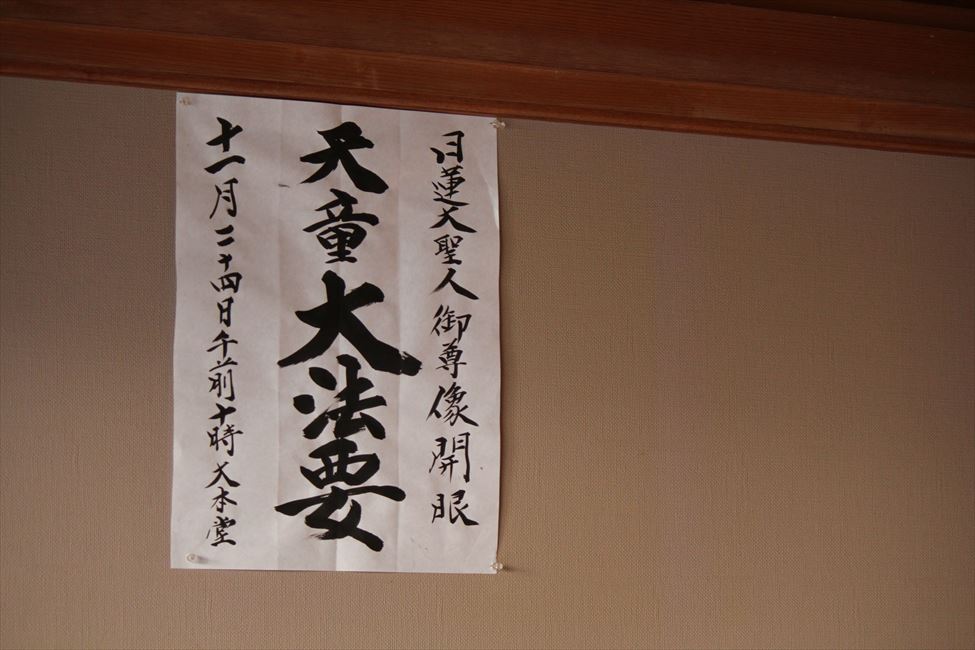 日蓮大聖人御尊像開眼
天童大法要
十一月二十四日午前十時大本堂